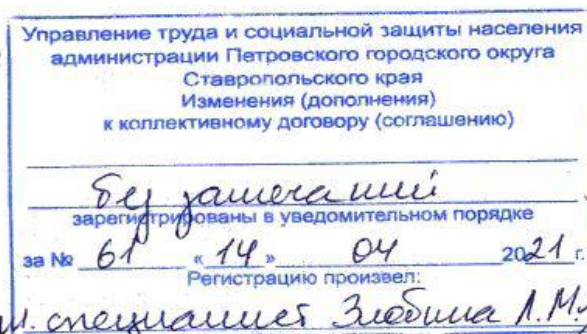 Управление труда и социальной защиты населения
администрации Петровского городского округа
Ставропольского края
Изменения (дополнения)
к коллективному договору (соглашению)
без замечаний
зарегистрированы в уведомительном порядке
за № 61 « 14 » 04 2021 г.
Регистрацию произвел:
специалист Злобина Л.М.